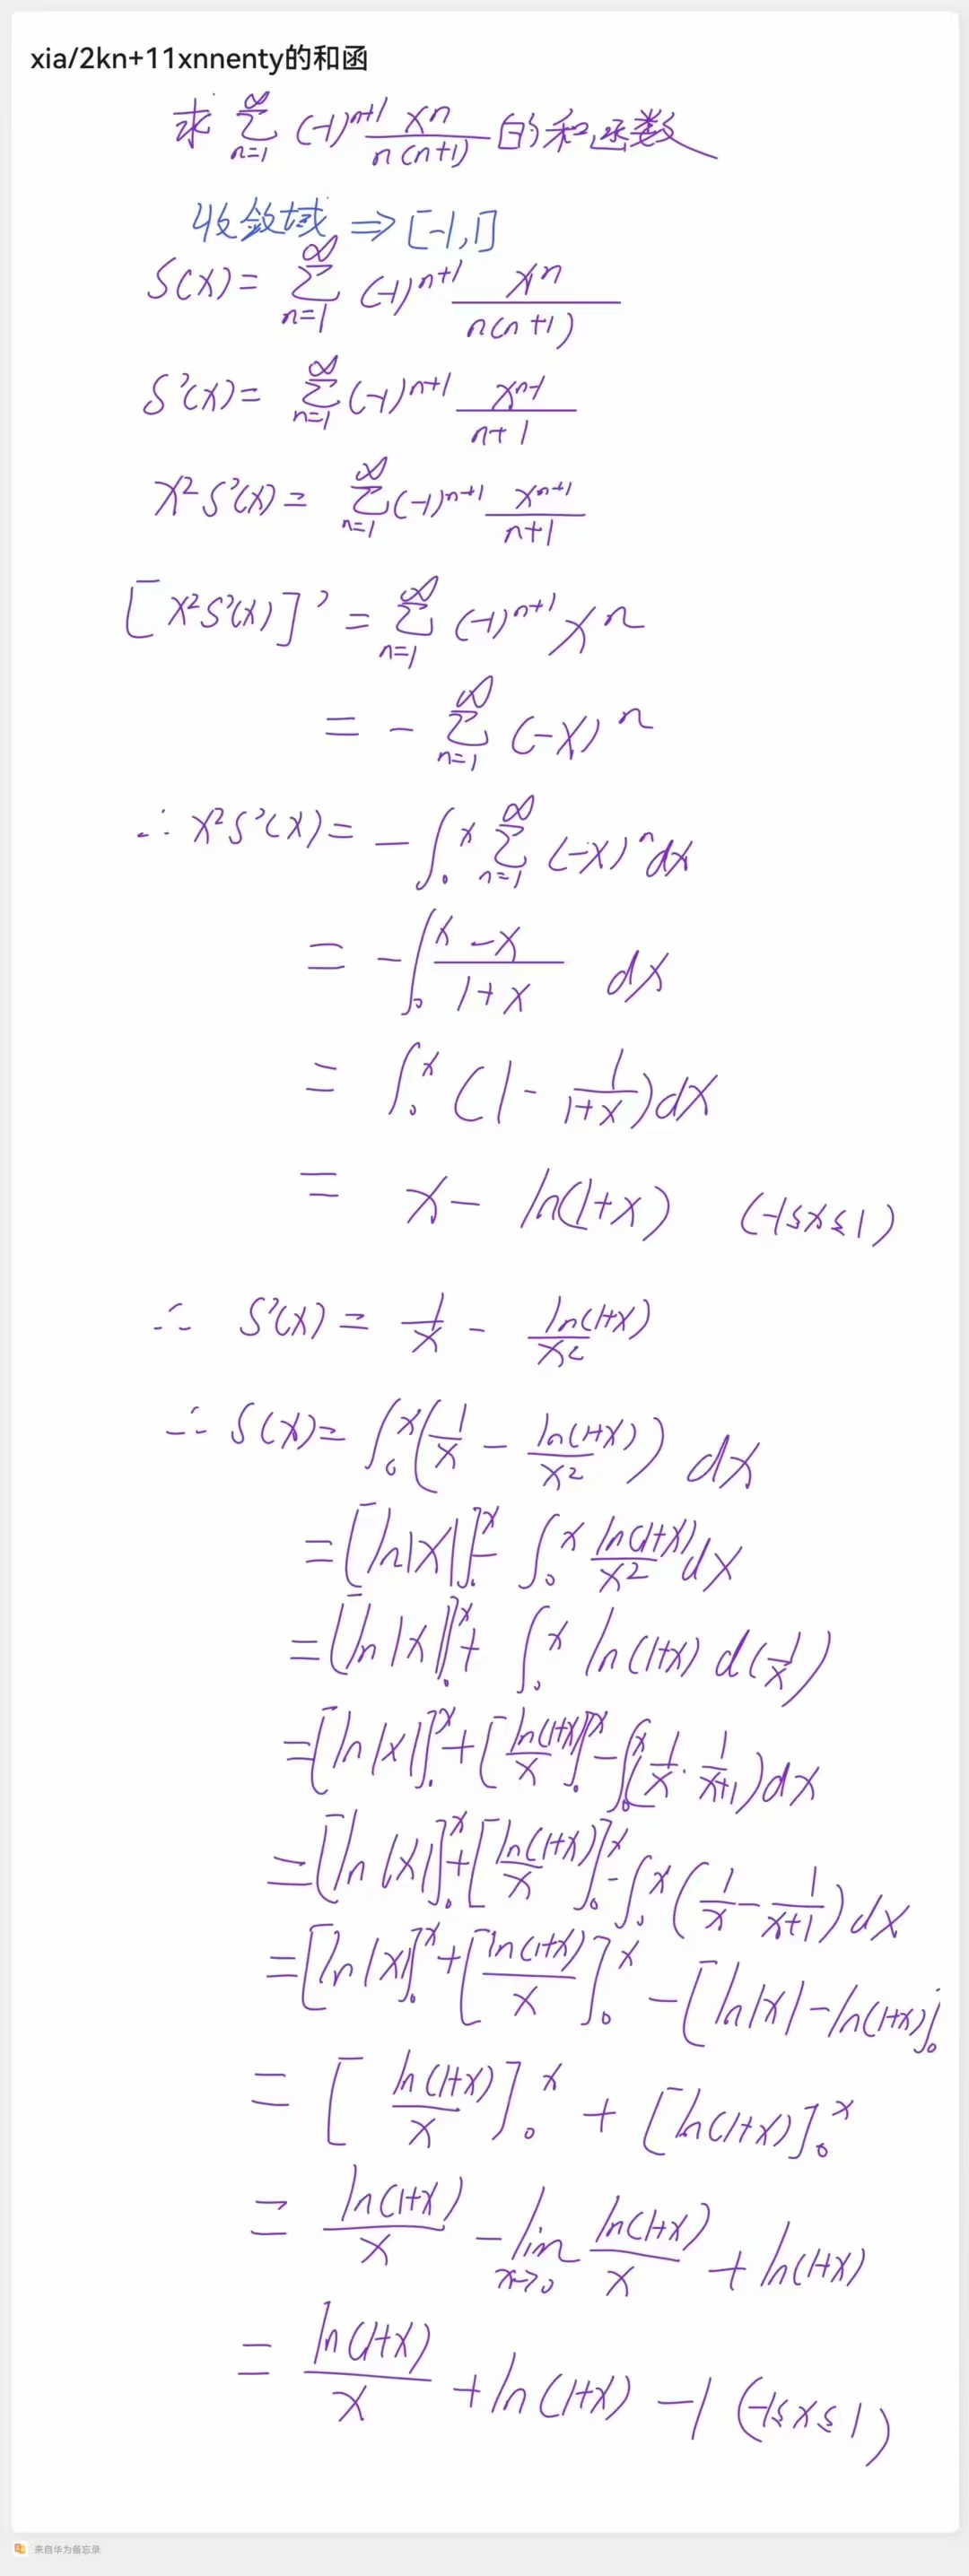 xia/2kn+11xnnenty的和函
求 ∑_{n=1}^{∞} (-1)^{n+1} x^n/(n(n+1)) 的和函数
收敛域 ⇒ [-1,1]
S(x) = ∑_{n=1}^{∞} (-1)^{n+1} x^n/(n(n+1))
S'(x) = ∑_{n=1}^{∞} (-1)^{n+1} x^{n-1}/(n+1)
x²S'(x) = ∑_{n=1}^{∞} (-1)^{n+1} x^{n+1}/(n+1)
[x²S'(x)]' = ∑_{n=1}^{∞} (-1)^{n+1} x^n
= - ∑_{n=1}^{∞} (-x)^n
∴ x²S'(x) = - ∫_0^x ∑_{n=1}^{∞} (-x)^n dx
= - ∫_0^x -x/(1+x) dx
= ∫_0^x (1 - 1/(1+x)) dx
= x - ln(1+x) (-1≤x≤1)
∴ S'(x) = 1/x - ln(1+x)/x²
∴ S(x) = ∫_0^x (1/x - ln(1+x)/x²) dx
= [ln|x|]_0^x - ∫_0^x ln(1+x)/x² dx
= [ln|x|]_0^x + ∫_0^x ln(1+x) d(1/x)
= [ln|x|]_0^x + [ln(1+x)/x]_0^x - ∫_0^x (1/x · 1/(x+1)) dx
= [ln|x|]_0^x + [ln(1+x)/x]_0^x - ∫_0^x (1/x - 1/(x+1)) dx
= [ln|x|]_0^x + [ln(1+x)/x]_0^x - [ln|x| - ln(1+x)]_0
= [ln(1+x)/x]_0^x + [ln(1+x)]_0^x
= ln(1+x)/x - lim_{x→0} ln(1+x)/x + ln(1+x)
= ln(1+x)/x + ln(1+x) - 1 (-1≤x≤1)
来自华为备忘录